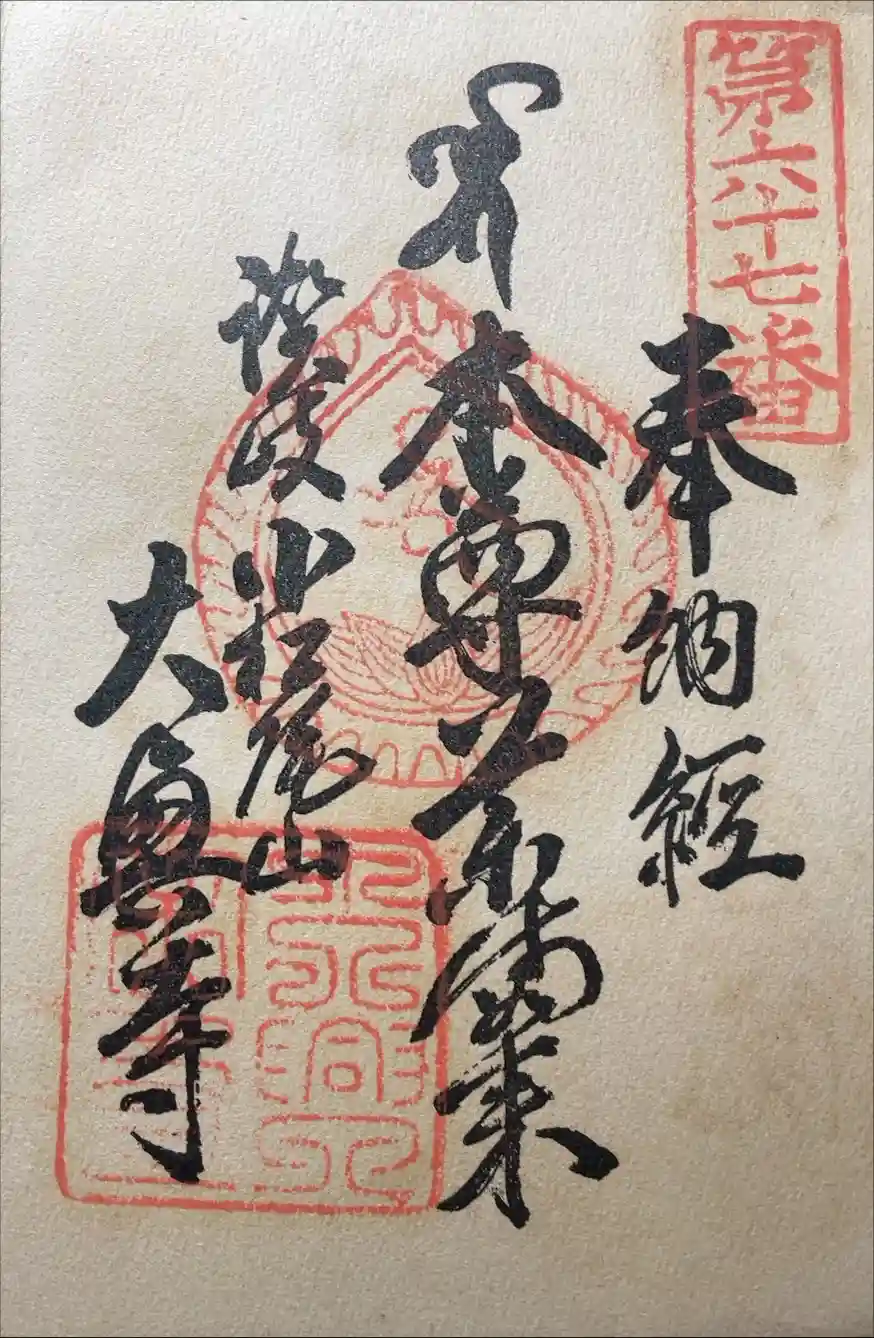 第六十七番
奉納經
本尊薬師如来
讃岐小松尾山
大興寺